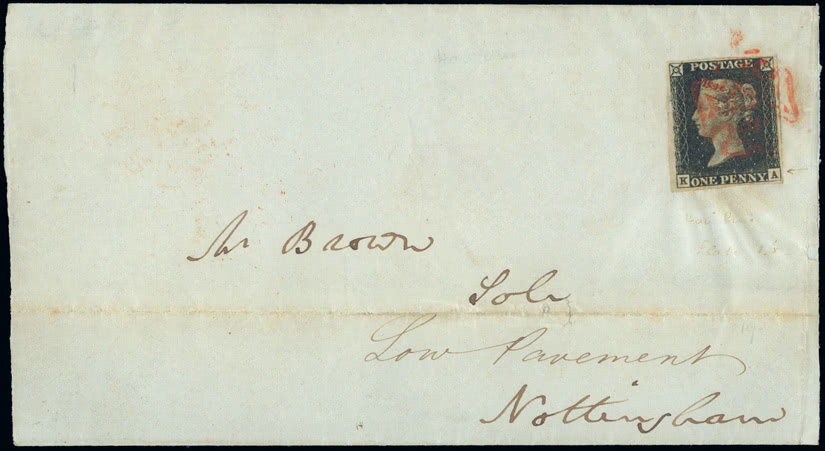 POSTAGE
K ONE PENNY A
Mr Brown
Solr
Low Pavement
Nottingham